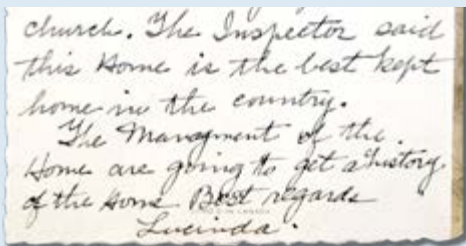 church. The Inspector said
this Home is the best kept
home in the country.
The Managment of the
Home are going to get a history
of the Home Best regards
Lucinda.